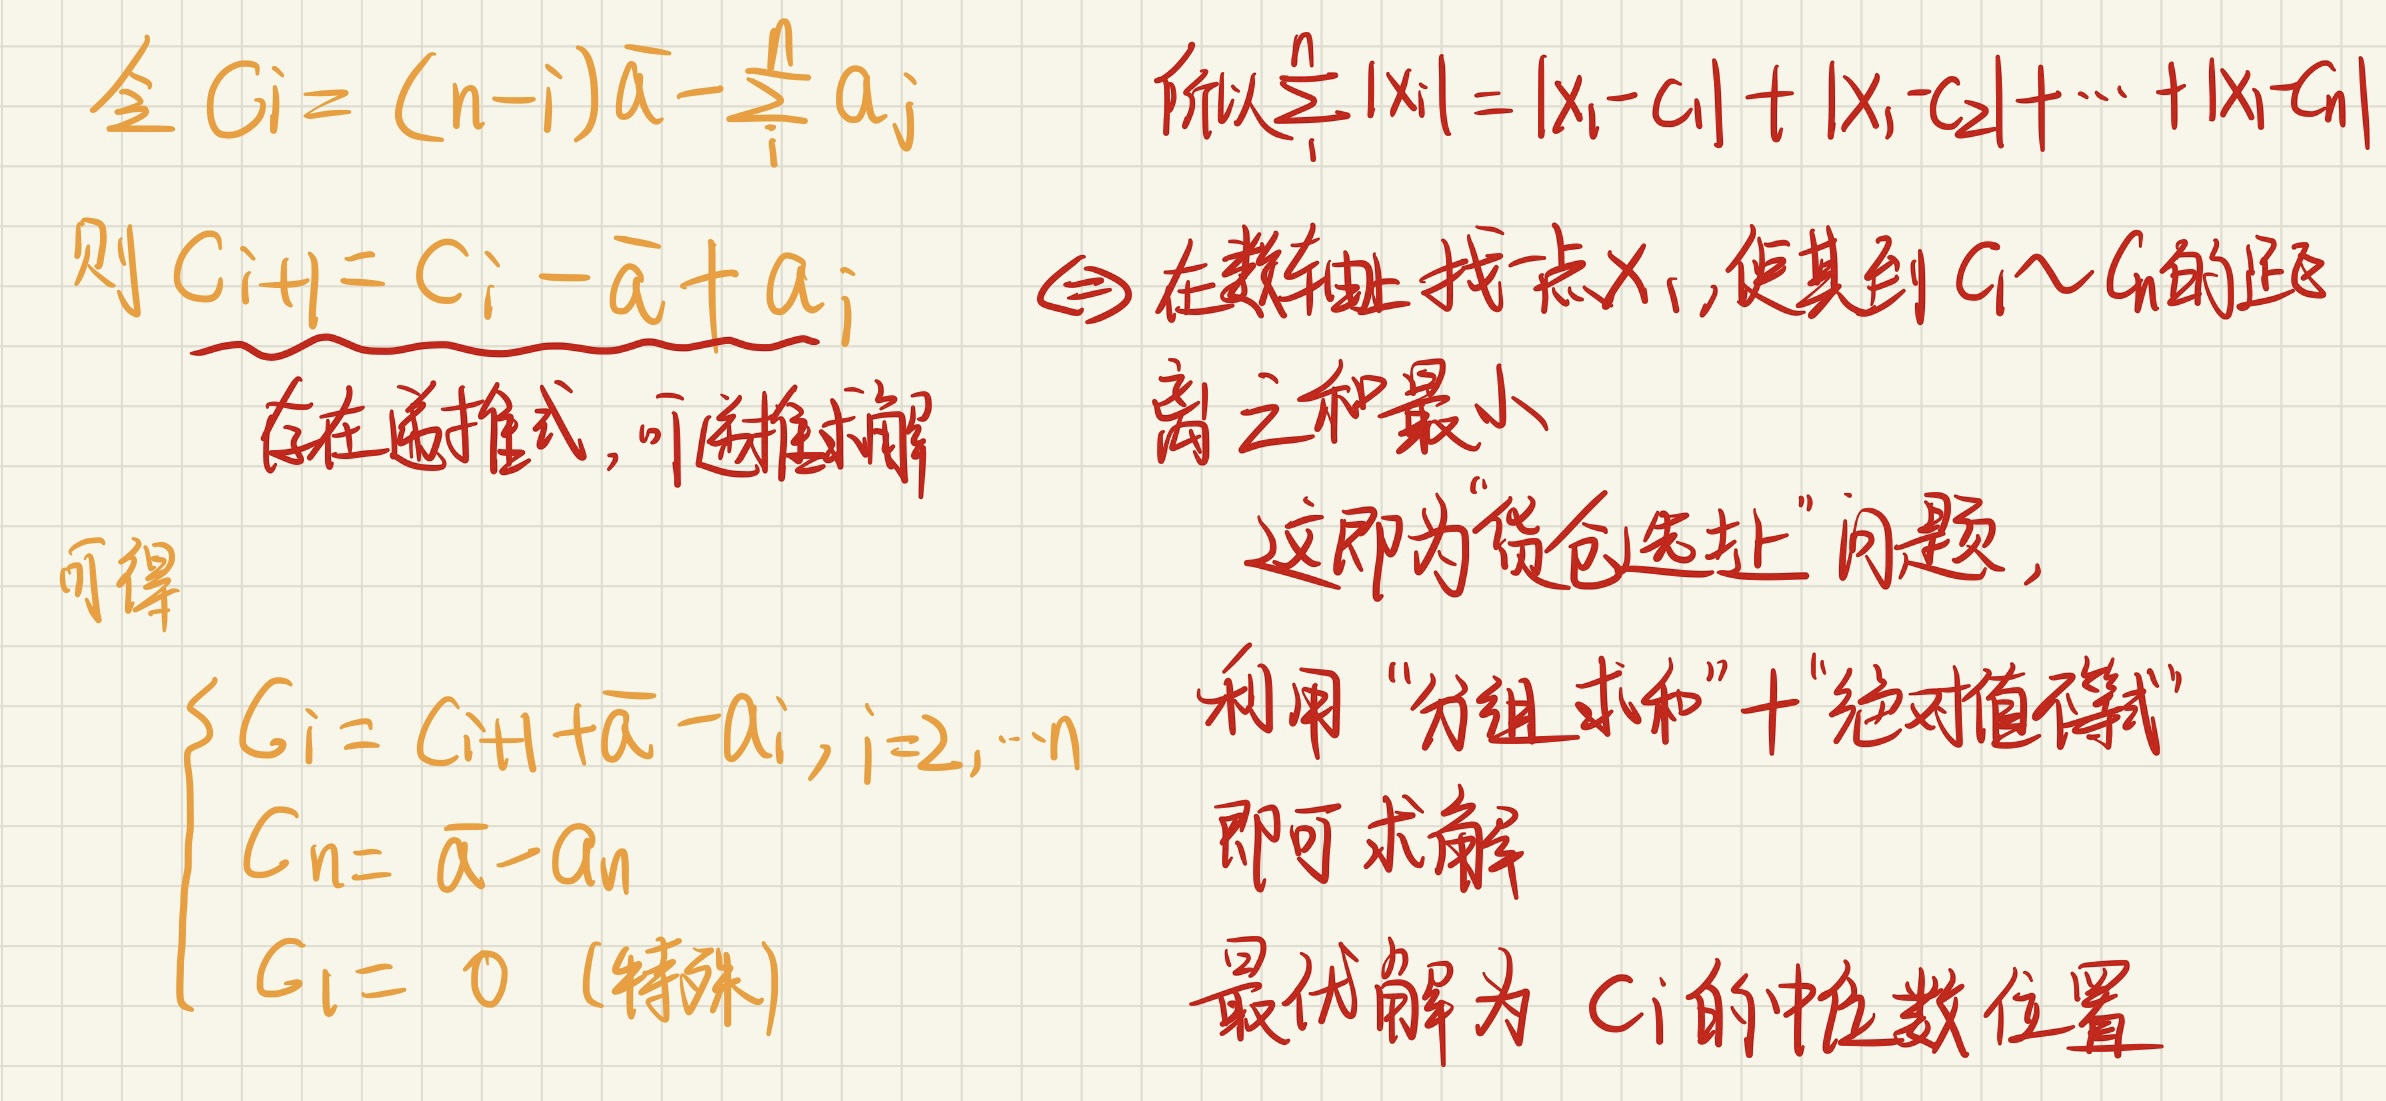 令 Ci = (n-i)ā - ∑ⁿᵢ aj
则 Ci+1 = Ci - ā + aj
存在递推式,可递推求解
可得
{ Ci = Ci+1 + ā - ai, i=2,…n
Cn = ā - an
C1 = 0 (特殊)
所以 ∑ⁿᵢ |xi| = |x1-c1| + |x1-c2| + … + |x1-cn|
⇔ 在数轴上找一点x1,使其到 C1~Cn的距
离之和最小
这即为“货仓选址”问题,
利用“分组求和”+“绝对值不等式”
即可求解
最优解为 Ci的中位数位置